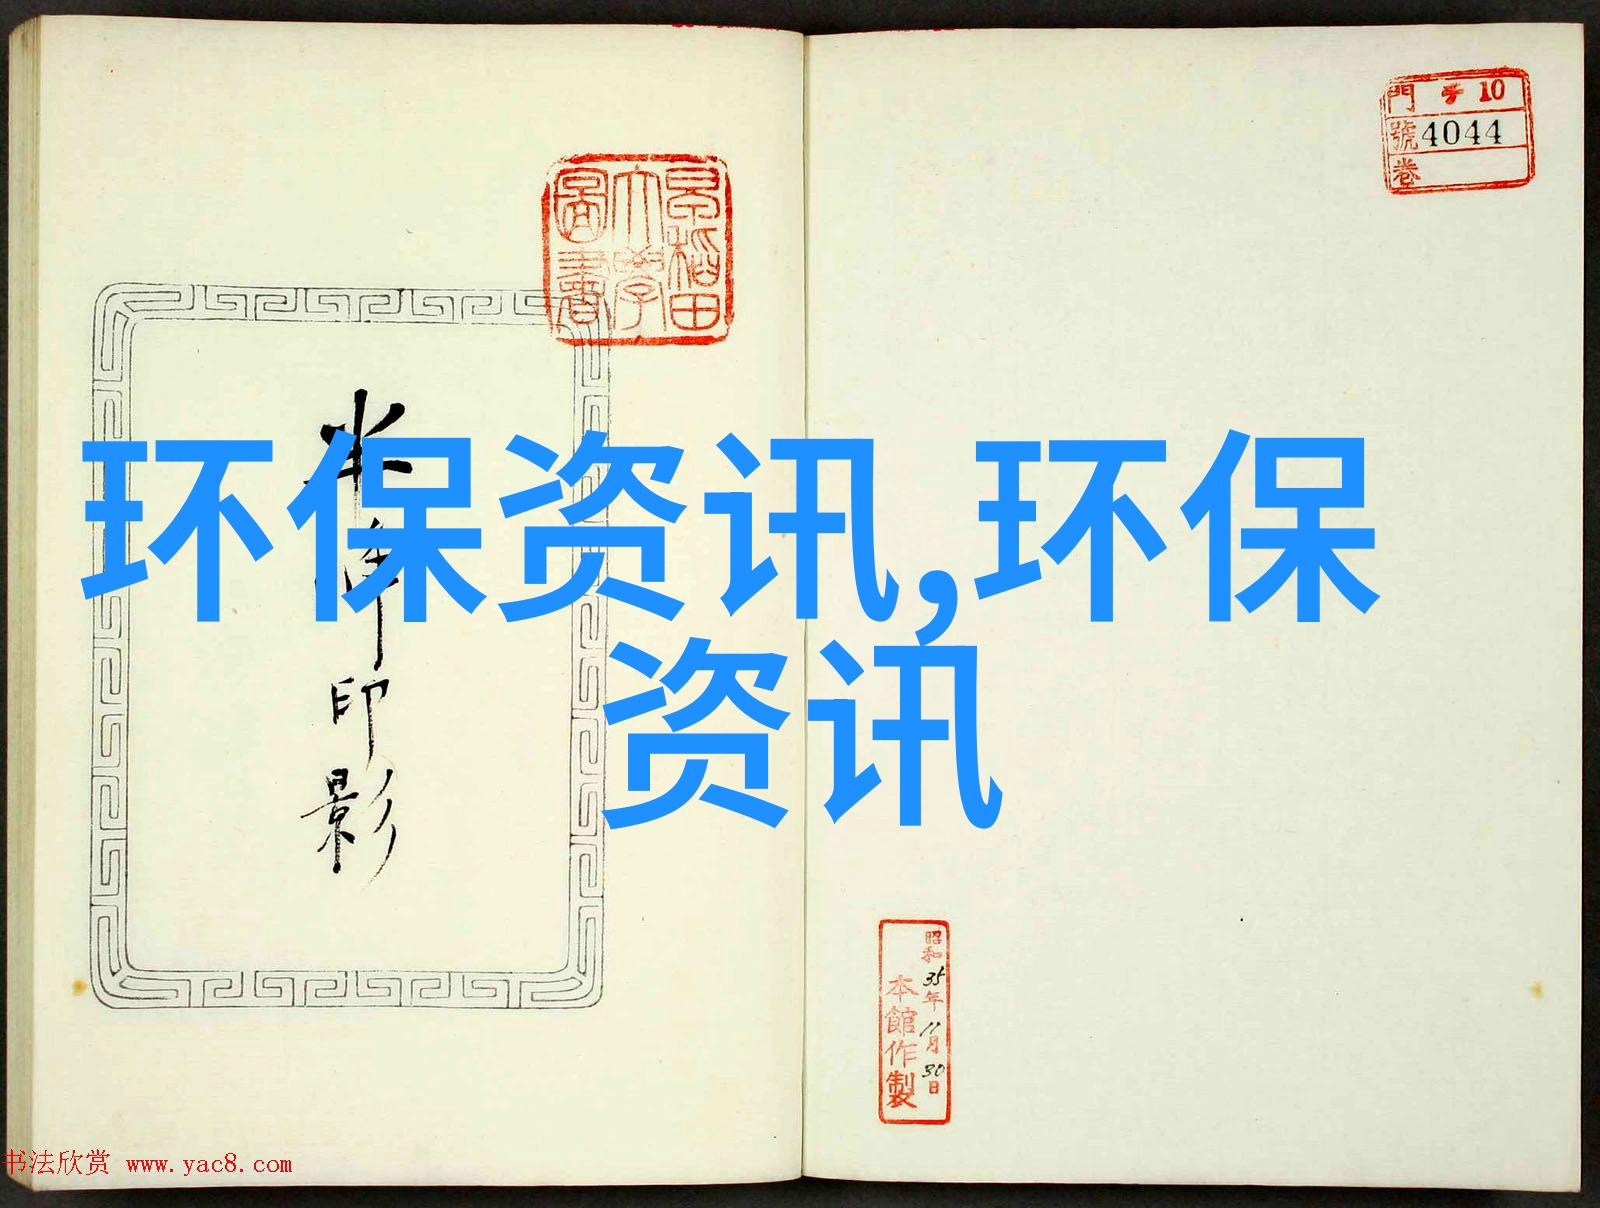 環保资讯,环保
资讯
早稻田
大學
圖書
門 チ 10
號 4044
卷
印影
昭和35年11月30日
本館作製
书法欣赏 www.yac8.com